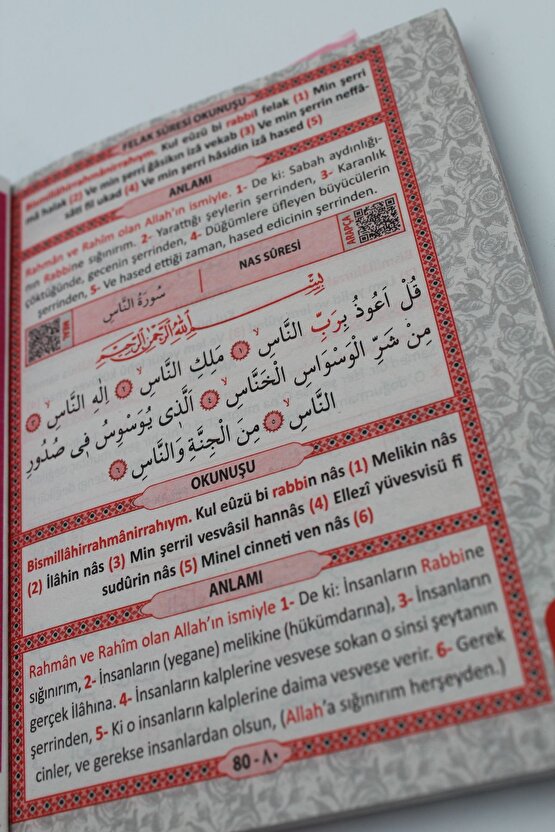 FELAK SÛRESİ OKUNUŞU
Bismillâhirrahmânirrahıym. Kul eûzü bi rabbil felak (1) Min şerri
mâ halak (2) Ve min şerri ğâsikın izâ vekab (3) Ve min şerrin neffâ-
sâti fil ukad (4) Ve min şerri hâsidin izâ hased (5)
ANLAMI
Rahmân ve Rahîm olan Allah'ın ismiyle. 1- De ki: Sabah aydınlığı-
nın Rabbine sığınırım. 2- Yarattığı şeylerin şerrinden, 3- Karanlık
çöktüğünde, gecenin şerrinden, 4- Düğümlere üfleyen büyücülerin
şerrinden, 5- Ve hased ettiği zaman, hased edicinin şerrinden.
MEAL
سُورَةُ النَّاسِ
NAS SÛRESİ
ARAPÇA
بِسْمِ اللّٰهِ الرَّحْمٰنِ الرَّحِيمِ
قُلْ اَعُوذُ بِرَبِّ النَّاسِ ﴿١﴾ مَلِكِ النَّاسِ ﴿٢﴾ اِلٰهِ النَّاسِ ﴿٣﴾
مِنْ شَرِّ الْوَسْوَاسِ الْخَنَّاسِ ﴿٤﴾ اَلَّذِى يُوَسْوِسُ فِى صُدُورِ
النَّاسِ ﴿٥﴾ مِنَ الْجِنَّةِ وَالنَّاسِ ﴿٦﴾
OKUNUŞU
Bismillâhirrahmânirrahıym. Kul eûzü bi rabbin nâs (1) Melikin nâs
(2) İlâhin nâs (3) Min şerril vesvâsil hannâs (4) Ellezî yüvesvisü fî
sudûrin nâs (5) Minel cinneti ven nâs (6)
ANLAMI
Rahmân ve Rahîm olan Allah'ın ismiyle 1- De ki: İnsanların Rabbine
sığınırım, 2- İnsanların (yegane) melikine (hükümdarına), 3- İnsanların
gerçek İlâhına. 4- İnsanların kalplerine vesvese sokan o sinsi şeytanın
şerrinden, 5- Ki o insanların kalplerine daima vesvese verir. 6- Gerek
cinler, ve gerekse insanlardan olsun, (Allah'a sığınırım herşeyden.)
80 - ٨٠